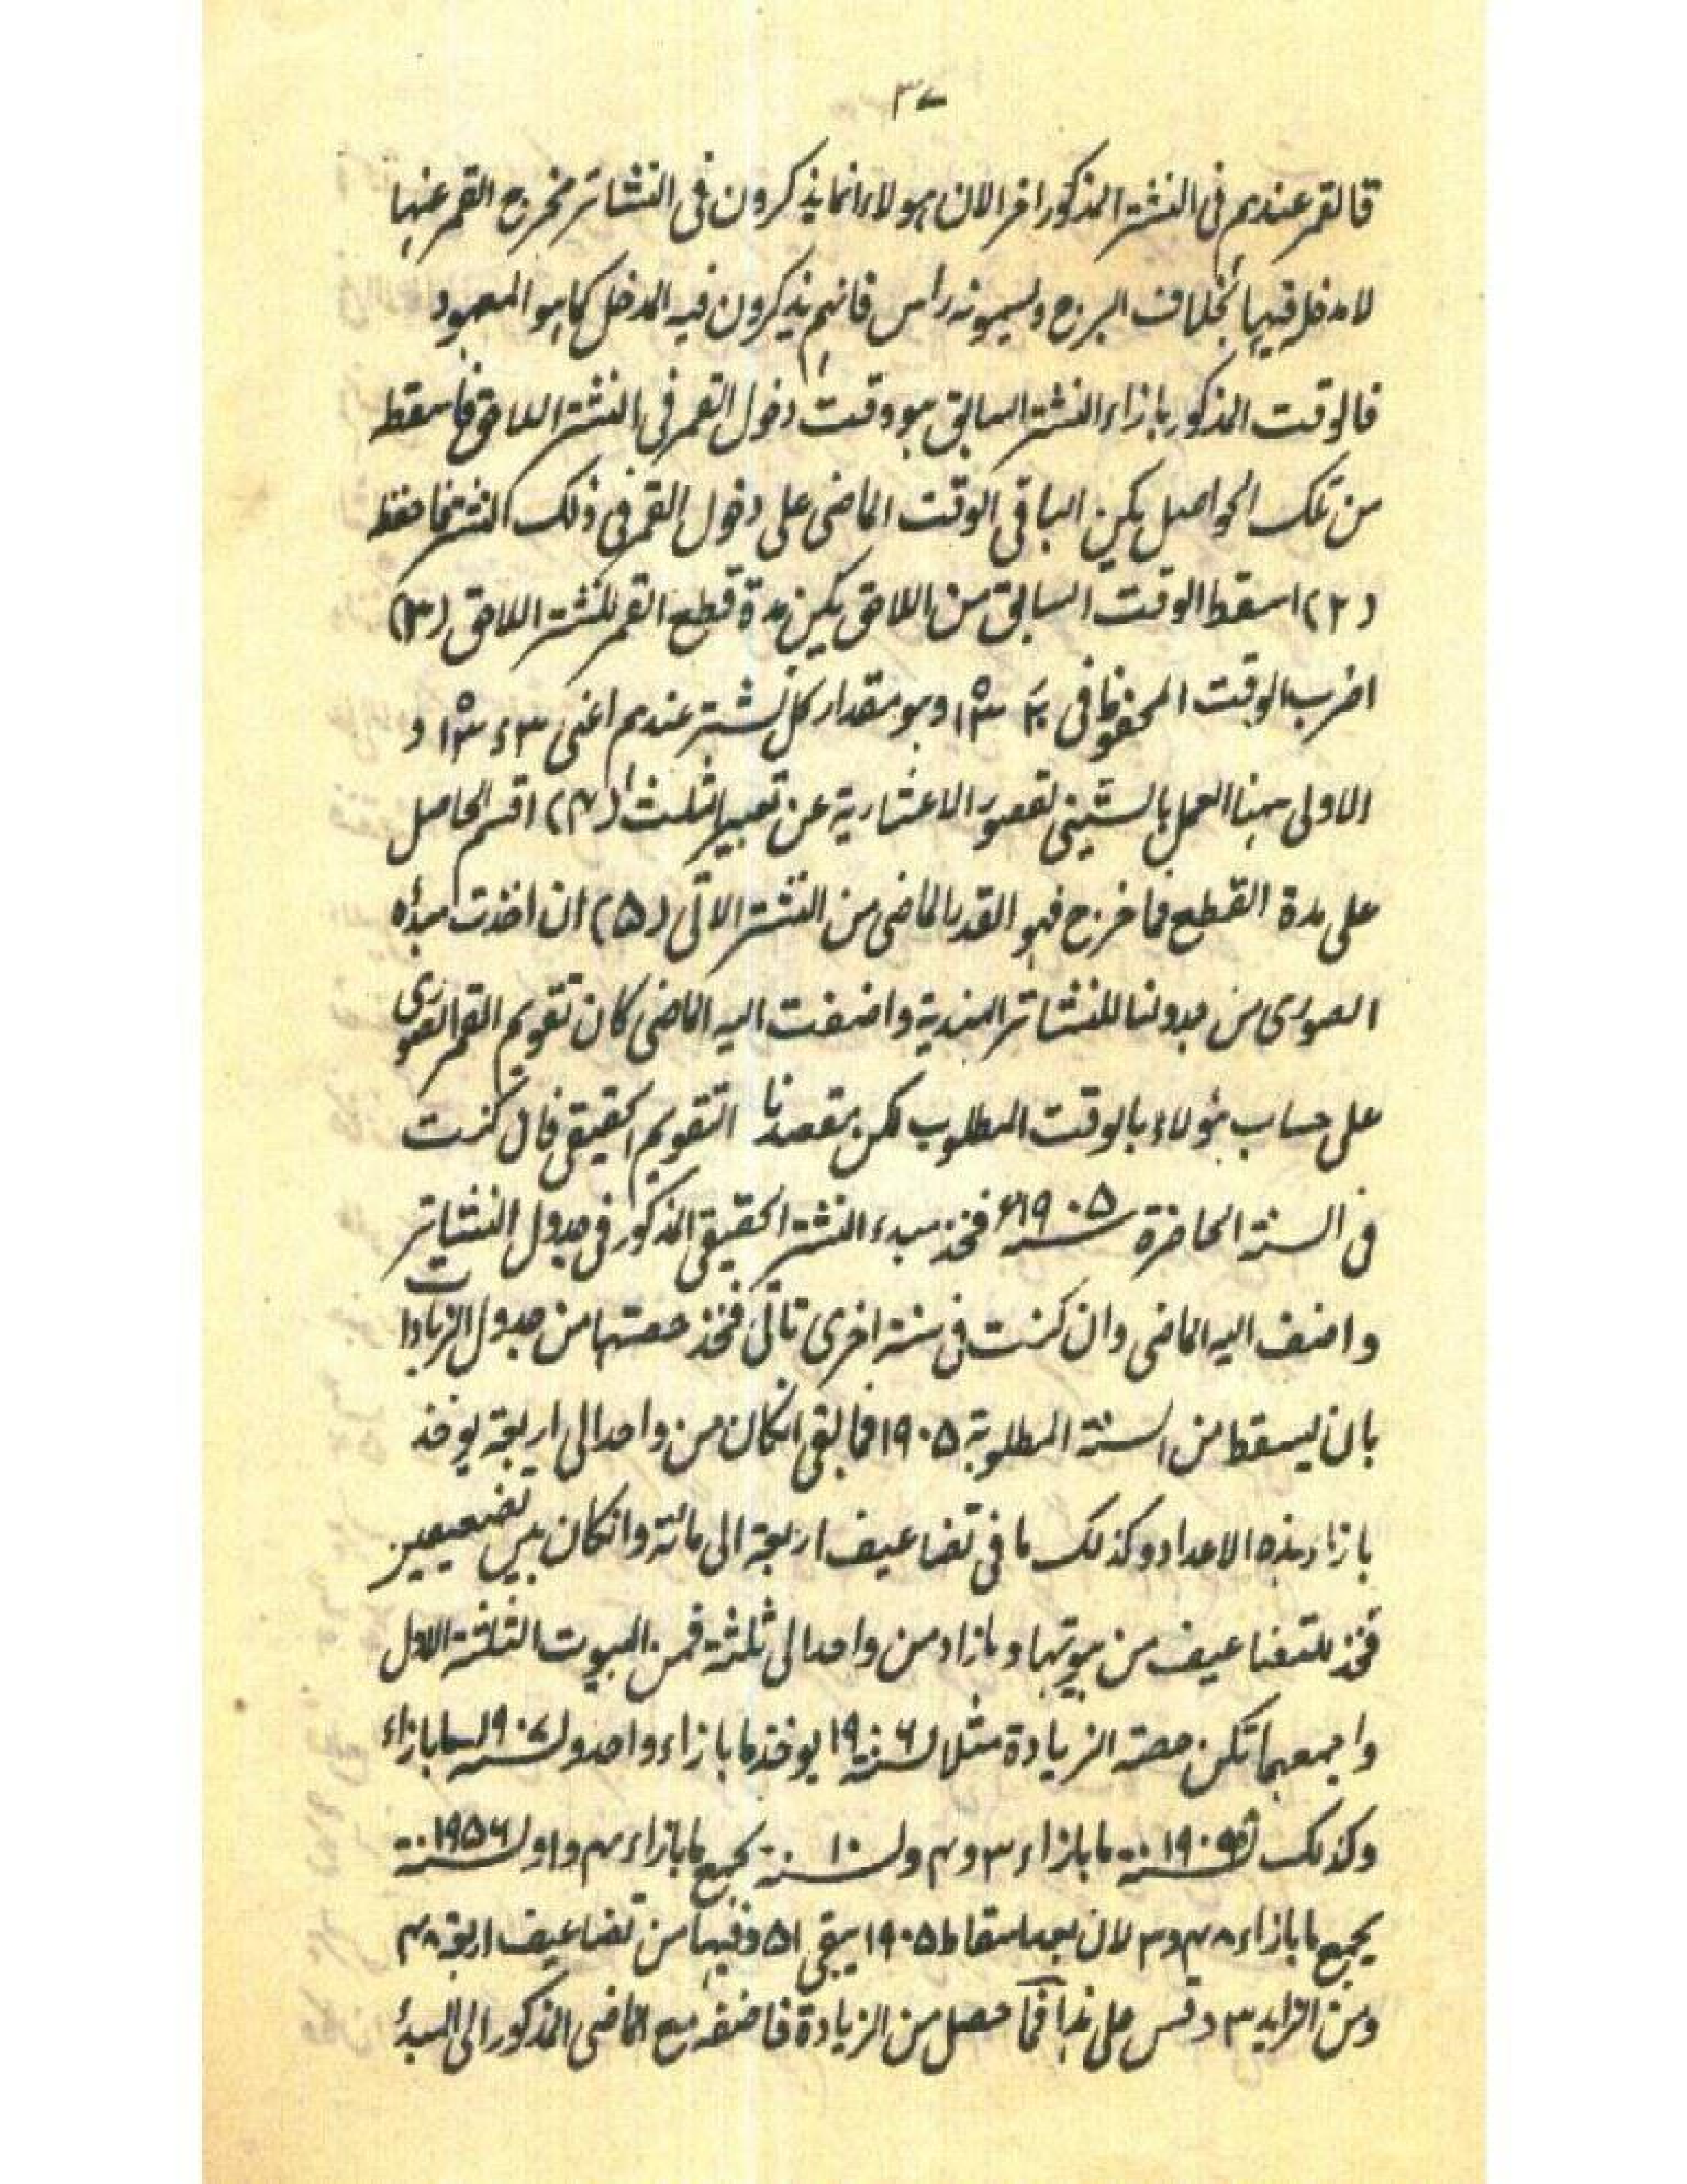 ٣٧
فالقمر عندهم فی النشتر المذکور اخر الان هولاء انما یذکرون فی النشاتر مخرج القمر عنها
لا مدخله فیها بخلاف البرج ویسمونه راس فانهم یذکرون فیه المدخل کما هو المعهود
فالوقت المذکور بازاء النشتر السابق هو وقت دخول القمر فی النشتر اللاحق فاسقطه
من تلک الحواصل یکن الباقی الوقت الماضی علی دخول القمر فی ذلک النشتر فاحفظه
(٢) اسقط الوقت السابق من اللاحق یکن مدة قطع القمر للنشتر اللاحق (٣)
اضرب الوقت المحفوظ فی وهو مقدار کل نشتر عندهم اعنی و
الاولی ههنا العمل بالستینی لقصور الاعشاریة عن تعبیر الثلث (۴) اقسم الحاصل
علی مدة القطع فما خرج فهو القدر الماضی من النشتر الاٰتی (۵) ان اخذت مبدأه
الصوری من جدولنا للنشاتر الهندیة واضفت الیه الماضی کان تقویم القمر الصوری
علی حساب هٰؤلاء بالوقت المطلوب لکن مقصدنا التقویم الحقیقی فان کنت
فی السنة الحاضرة سنه ١٩٠۵ء فخذ مبدء النشتر الحقیقی المذکور فی جدول النشاتر
واضف الیه الماضی وان کنت فی سنة اخری تاتی فخذ حصتها من جدول الزیادات
بان یسقط من السنة المطلوبة ١٩٠۵ فما بقی انکان من واحد الی اربعة یوخذ
بازاء هذه الاعداد وکذلک ما فی تضاعیف اربعة الی مائة وانکان بین تضعیفین
فخذ للتضاعیف من بیوتها وما زاد من واحد الی ثلثة فمن البیوت الثلثة الاول
واجمعهما تکن حصة الزیادة مثلا لسنة ١٩٠۶ یوخذ ما بازاء واحد ولسنه ١٩٠٧ ما بازاء
وکذلک لسنة ١٩٠٩ ما بازاء ٣ و ۴ ولسنة ١٠ یجمع ما بازاء ۴ و ١ ولسنة ١٩۵۶
یجمع ما بازاء ۴٨ و ٣ لان بعد اسقاط ١٩٠۵ یبقی ۵١ وفیها من تضاعیف اربعة ۴٨
ومن الزاید ٣ وقس علی هذا فما حصل من الزیادة فاضفه مع الماضی المذکور الی المبدأ